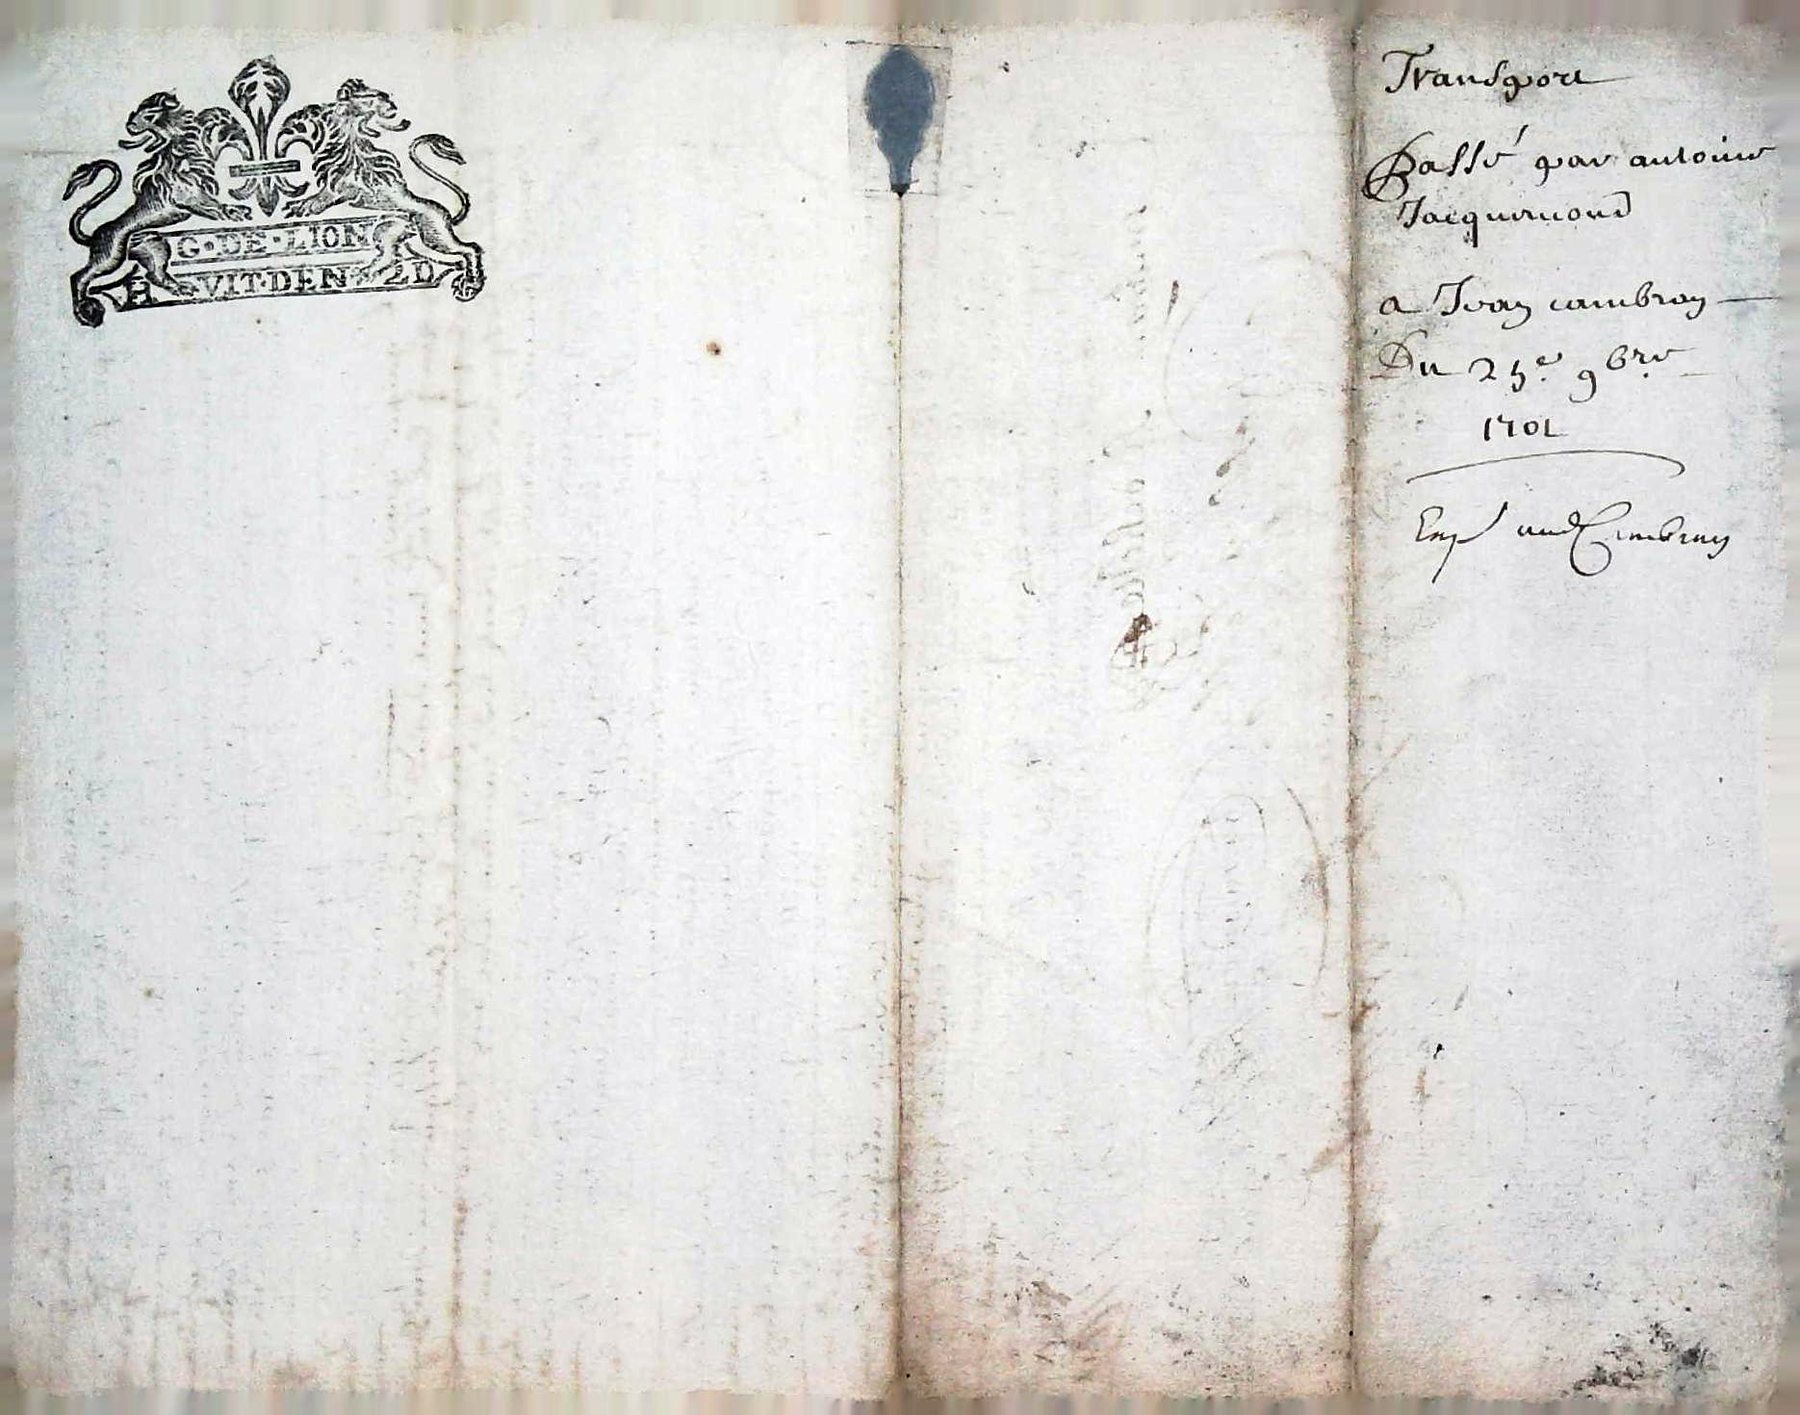 G·DE·LION
HVIT·DEN 2D
Transport
Passé par antoine
Jacquemond
a Jean cambray
Du 25e 9bre
1701
Exp